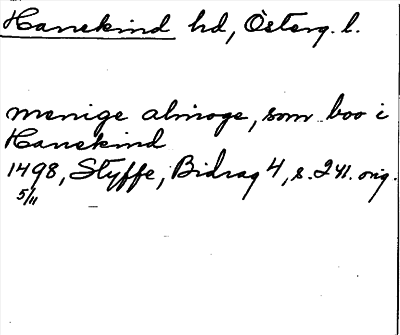 Hanekind hd, Österg. l.
menige almoge, som boo i
Hanekind
1498, Styffe, Bidrag 4, s. 241. orig.
5/11